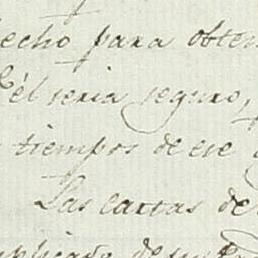 echo para obten
él seria seguro,
tiempos de ese
Las cartas de